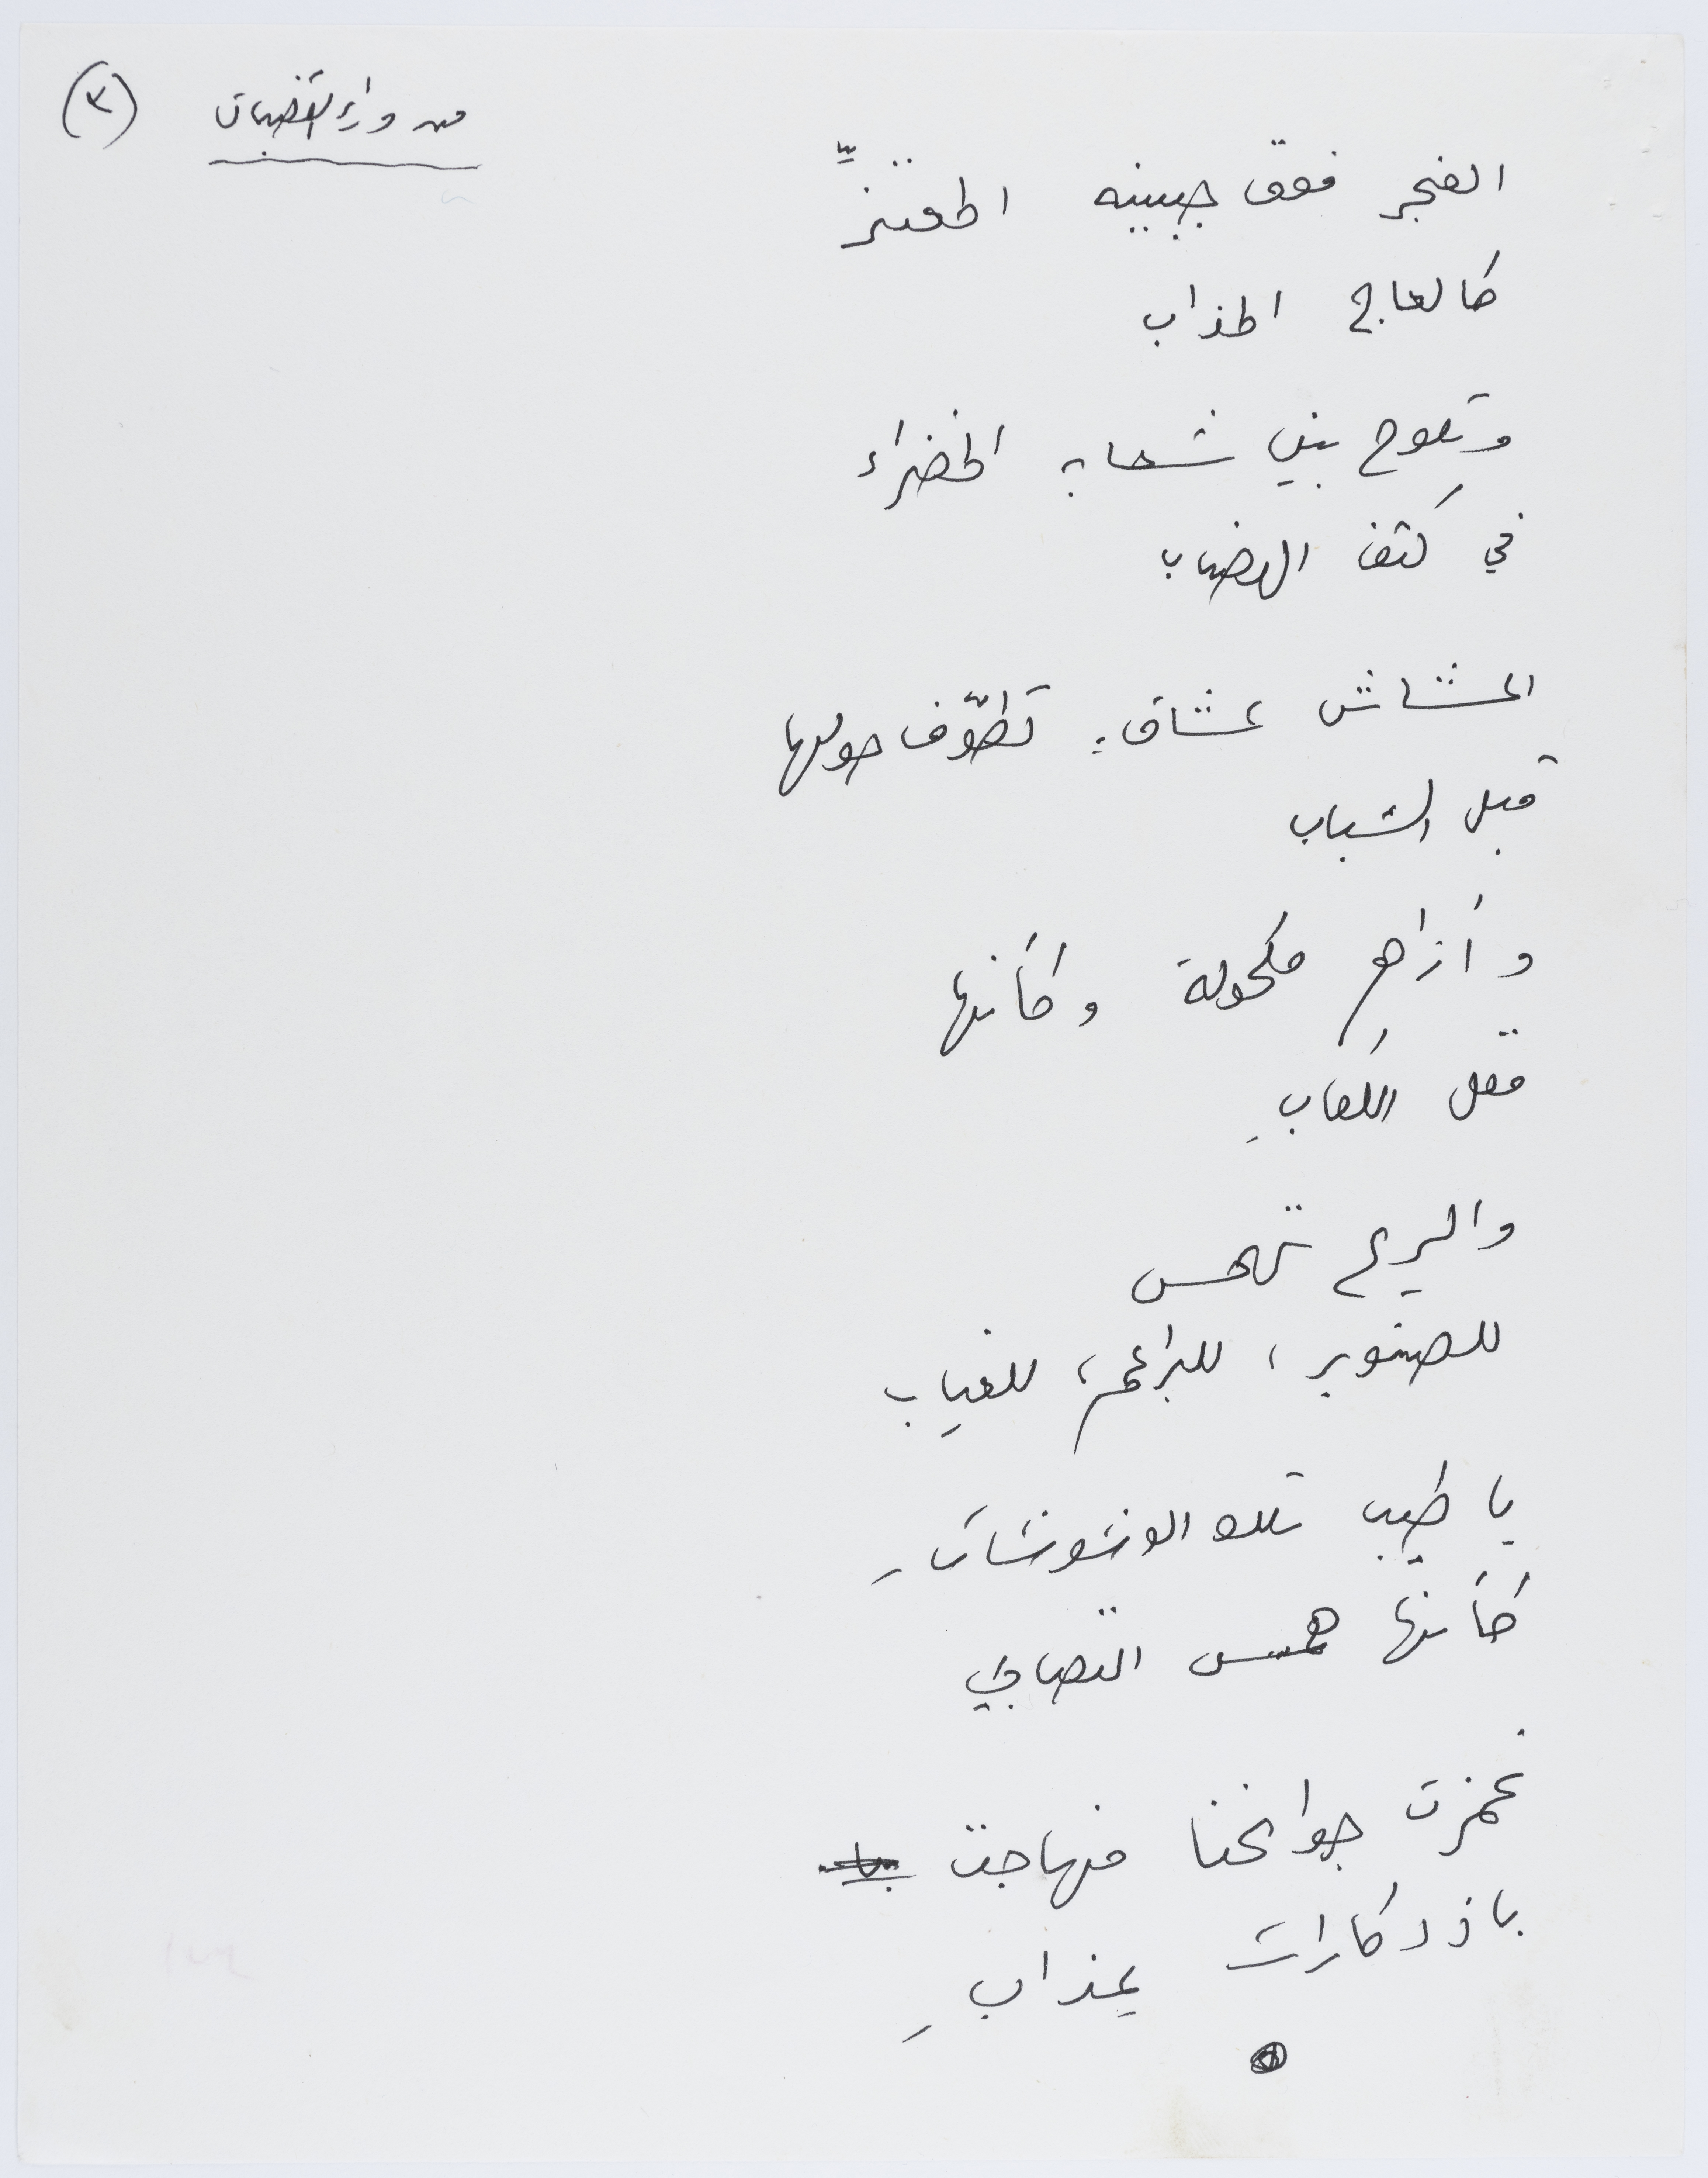 من وراء القضبان (٢)
الفجر فوق جبينه المعتزِّ
كالعاج المذاب
وتلوح بين شعابه الخضراء
في كتف الهضاب
أعشاش عشاق، تطوّف حولها
قبل الشباب
وأزاهر مكحولة وكأنها
مقل الكعابِ
والريح تهمس
للصنوبر، للبراعم، للغياب
يا طيب تلك الوشوشاتِ
كأنها همس التصابي
غمزت جوانحنا فهاجت
باذدكارات عِذابِ